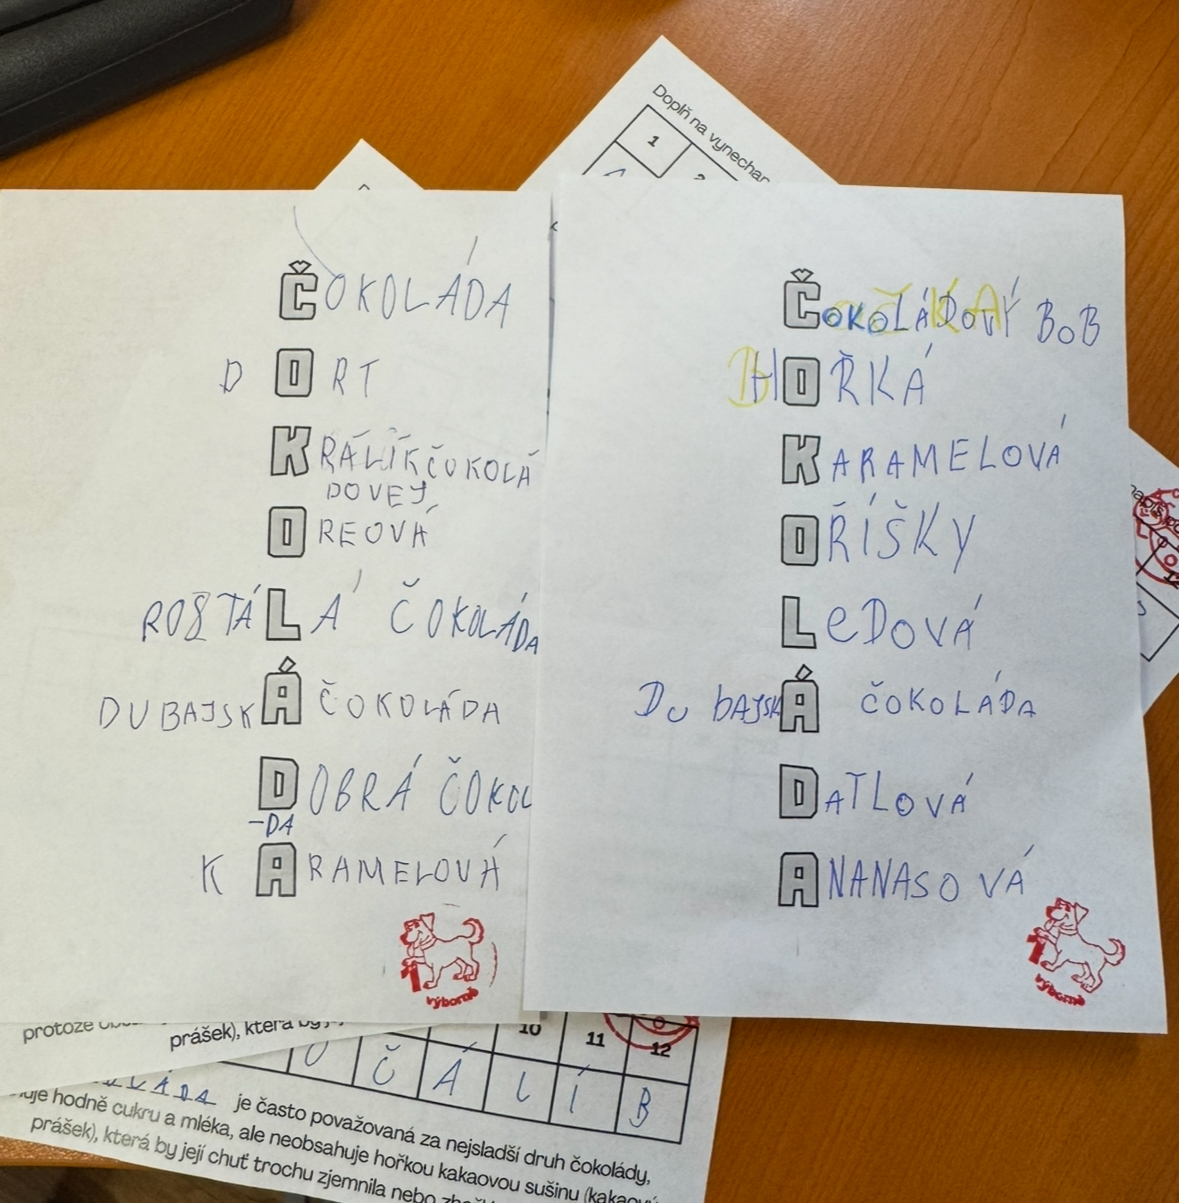 Doplň na vynechan
1
2
ČOKOLÁDA
DORT
KRÁLÍK ČOKOLÁ
DOVEJ
OREOVÁ
ROZTÁLÁ ČOKOLÁDA
DUBAJSKÁ ČOKOLÁDA
DOBRÁ ČOKOL
-DA
KARAMELOVÁ
výborně
ČOKOLÁDOVÝ BOB
HOŘKÁ
KARAMELOVÁ
OŘÍŠKY
LEDOVÁ
DUBAJSKÁ ČOKOLÁDA
DATLOVÁ
ANANASOVÁ
výborně
protože
prášek), která by
10 11 12
O Č Á L Í B
LÁDA je často považovaná za nejsladší druh čokolády,
uje hodně cukru a mléka, ale neobsahuje hořkou kakaovou sušinu (kakaový
prášek), která by její chuť trochu zjemnila nebo